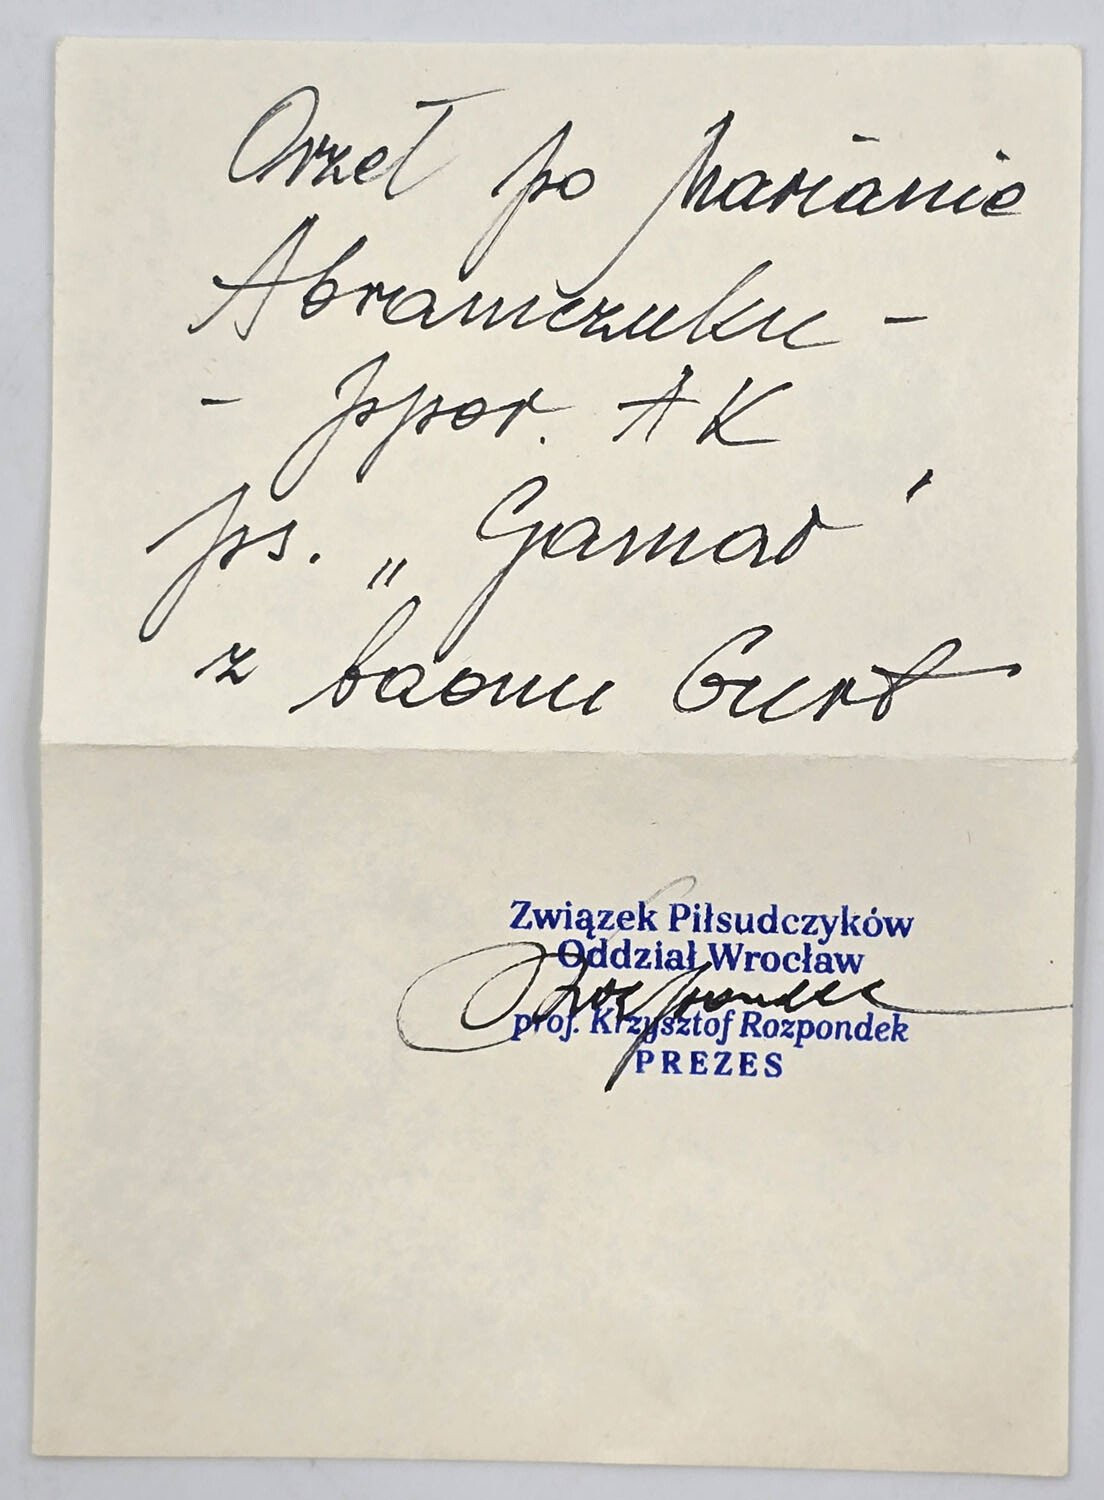 Orzeł po Marianie
Abramczuku -
- ppor. AK
ps. „Gamar"
z baonu Gurt
Związek Piłsudczyków
Oddział Wrocław
Rozpondek
prof. Krzysztof Rozpondek
PREZES